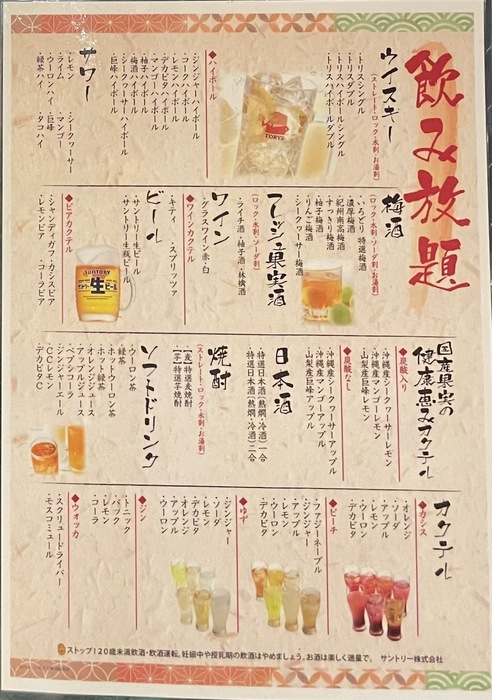 飲み放題
ウイスキー
(ストレート・ロック・水割・お湯割)
・トリスシングル
・トリスダブル
・トリスハイボールシングル
・トリスハイボールダブル
TORYS
◆ハイボール
・ジンジャーハイボール
・コークハイボール
・レモンハイボール
・デカビタハイボール
・マンゴーハイボール
・柚子ハイボール
・梅酒ハイボール
・シークヮーサーハイボール
・巨峰ハイボール
サワー
・レモン ・シークヮーサー
・ライム ・マンゴー
・ウーロンハイ ・巨峰
・緑茶ハイ ・タコハイ
梅酒
(ロック・水割・ソーダ割・お湯割)
・いろどり 特選梅酒
・濃厚梅酒
・紀州南高梅酒
・すっきり梅酒
・柚子梅酒
・りんご梅酒
・シークヮーサー梅酒
フレッシュ果実酒
(ロック・水割・ソーダ割)
・ライチ酒 ・柚子酒 ・林檎酒
ワイン
・グラスワイン 赤・白
◆ワインカクテル
・キティ ・スプリッツァ
ビール
・サントリー生ビール
・サントリー生瓶ビール
SUNTORY
生
ビール
◆ビアカクテル
・シャンディガフ ・カシスビア
・レモンビア ・コーラビア
国産果実の
健康恵みカクテル
◆炭酸入り
・沖縄産シークヮーサーレモン
・沖縄産マンゴーレモン
・山梨産巨峰レモン
◆炭酸なし
・沖縄産シークヮーサーアップル
・沖縄産マンゴーアップル
・山梨産巨峰アップル
日本酒
・特選日本酒(熱燗・冷酒)一合
・特選日本酒(熱燗・冷酒)二合
焼酎
(ストレート・ロック・水割・お湯割)
・【麦】特選麦焼酎
・【芋】特選芋焼酎
ソフトドリンク
・ウーロン茶
・緑茶
・ホットウーロン茶
・ホット緑茶
・オレンジジュース
・アップルジュース
・ペプシコーラ
・ジンジャーエール
・CCレモン
・デカビタC
カクテル
◆カシス
・オレンジ
・ソーダ
・アップル
・レモン
・ウーロン
・デカビタ
◆ピーチ
・ファジーネーブル
・ジンジャー
・アップル
・レモン
・ウーロン
・デカビタ
◆ゆず
・ジンジャー
・ソーダ
・レモン
・デカビタ
・オレンジ
・アップル
・ウーロン
◆ジン
・トニック
・バック
・レモン
・コーラ
◆ウォッカ
・スクリュードライバー
・モスコミュール
ストップ!20歳未満飲酒・飲酒運転。妊娠中や授乳期の飲酒はやめましょう。お酒は楽しく適量で。 サントリー株式会社